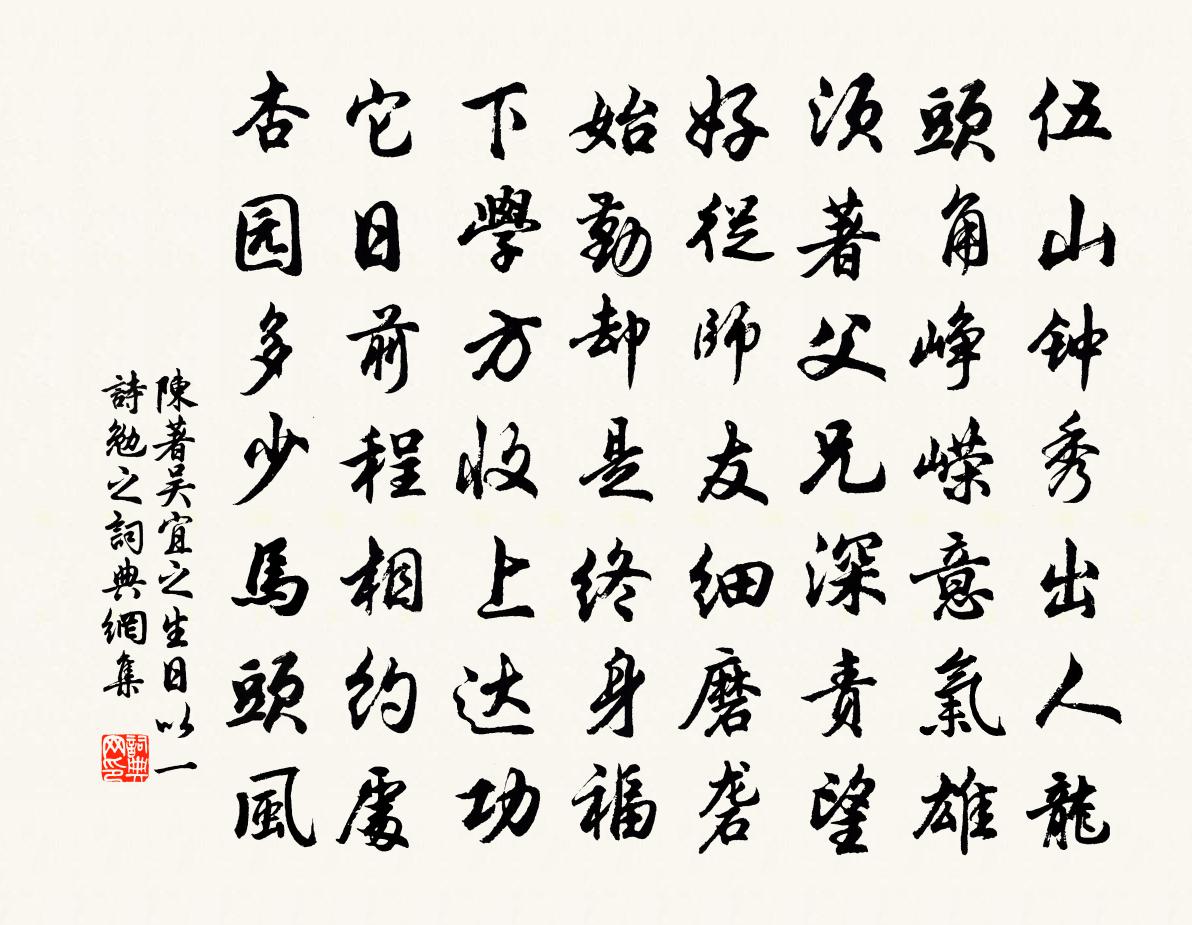 伍山钟秀出人龍
頭角峥嵘意氣雄
須著父兄深責望
好從師友细磨砻
始勤却是终身福
下學方收上达功
它日前程相约處
杏园多少馬頭風
陳著吴宜之生日以一
詩勉之詞典網集
詞典網印